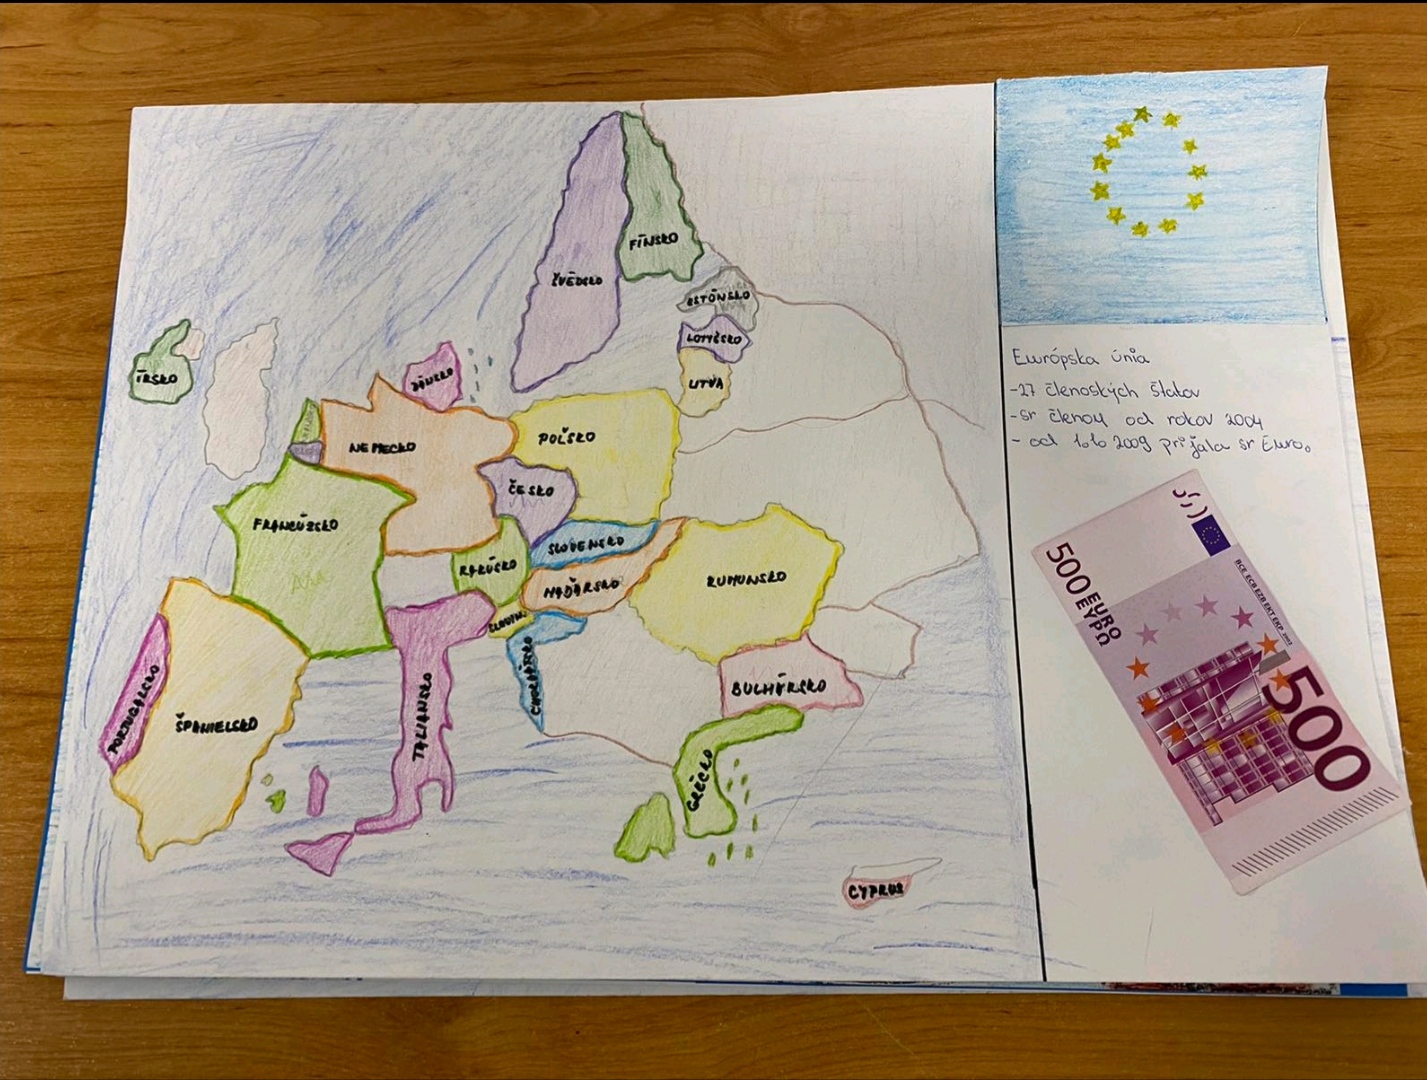 FÍNSKO
ŠVÉDSKO
ESTÓNSKO
LOTYŠSKO
LITVA
ÍRSKO
DÁNSKO
NEMECKO
POĽSKO
ČESKO
FRANCÚZSKO
SLOVENSKO
RAKÚSKO
MAĎARSKO
RUMUNSKO
SLOVIN.
CHORVÁTSKO
PORTUGALSKO
ŠPANIELSKO
TALIANSKO
BULHARSKO
GRÉCKO
CYPRUS
Európska únia
-27 členských štatov
-sr členom od rokov 2004
- od 1.1.o 2009 prijala sr Euro.
500 EURO
ΕΥΡΩ
BCE ECB EZB EKT EKP 2002
500